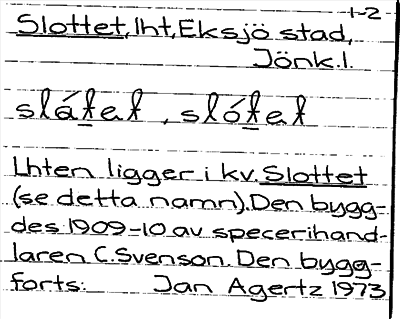 1-2
Slottet, lht, Eksjö stad,
Jönk. l.
slátet, slótet
Lhten ligger i kv. Slottet
(se detta namn). Den bygg-
des 1909-10 av specerihand-
laren C. Svenson. Den bygg-
forts. Jan Agertz 1973